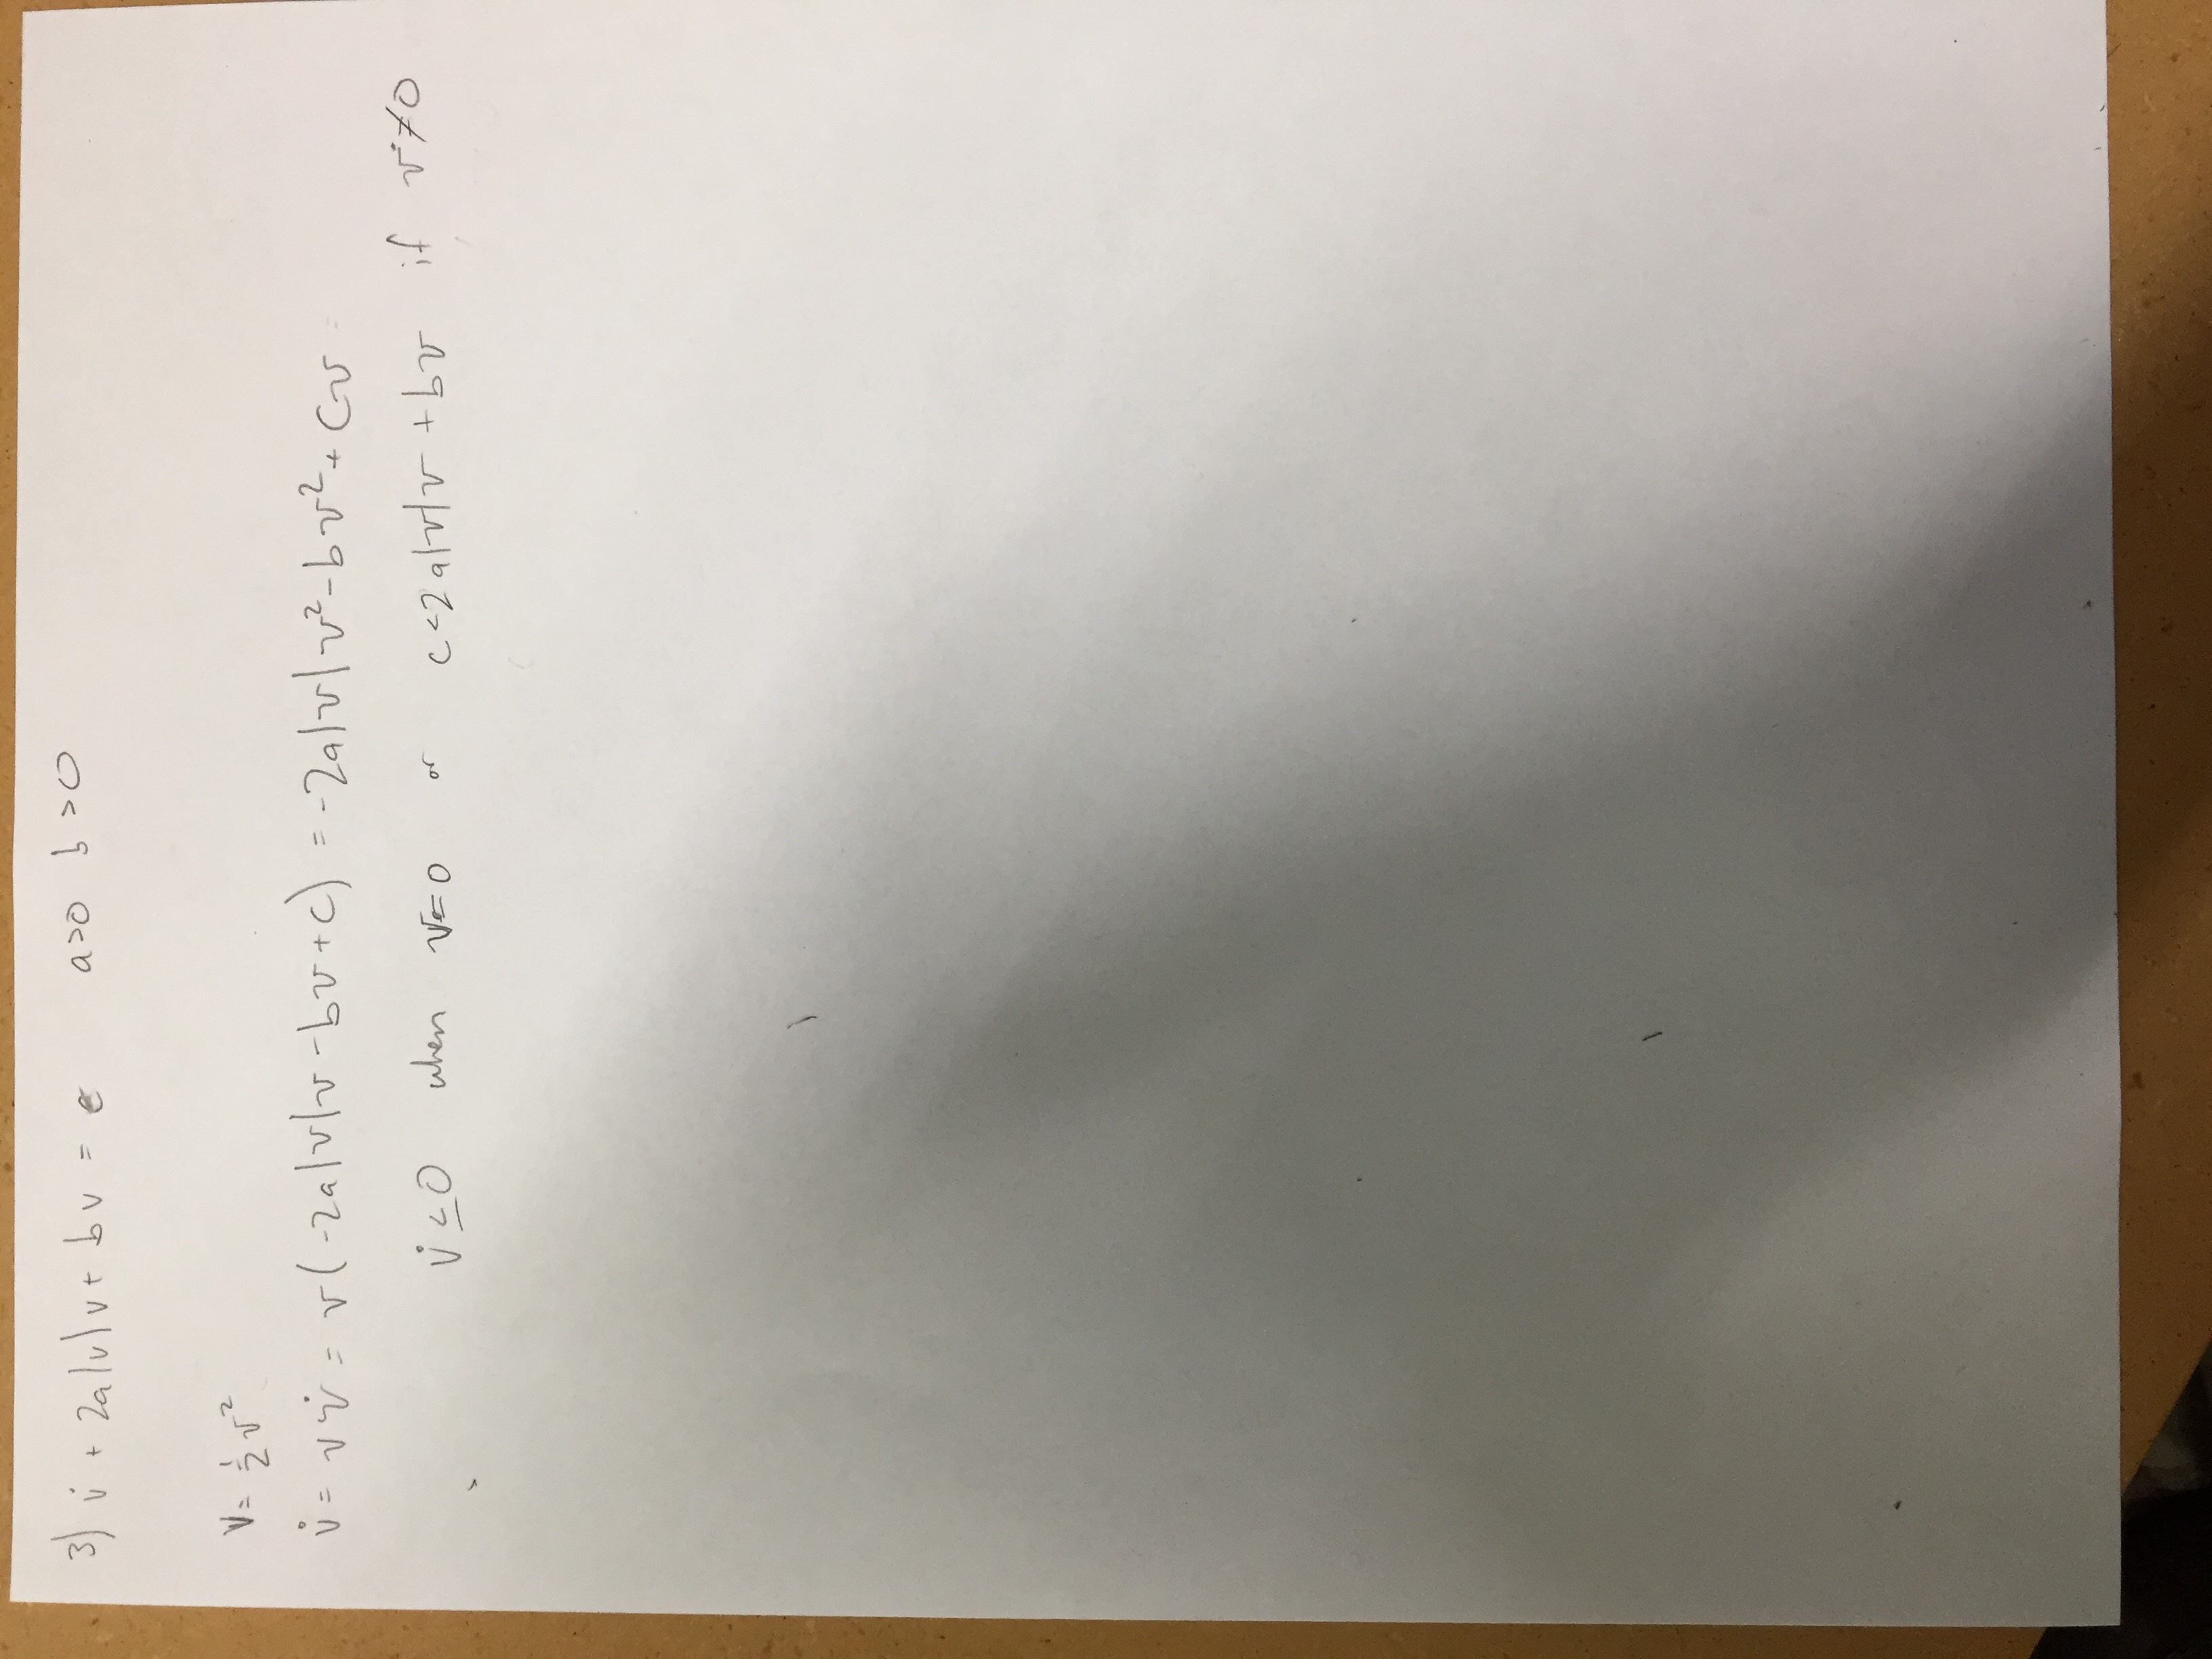 3) v̇ + 2a|v|v + bv = c a>0 b>0
V = ½ v²
V̇ = v v̇ = v(-2a|v|v - bv + c) = -2a|v|v² - bv² + cv
V̇ ≤ 0 when v=0 or c < 2a|v|v + bv if v≠0